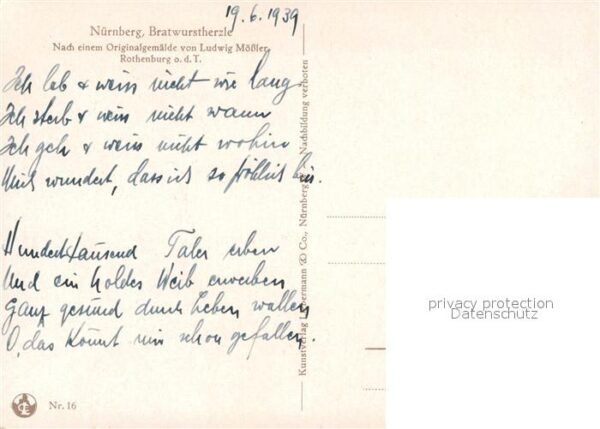 19.6.1939
Nürnberg, Bratwurstherzle
Nach einem Originalgemälde von Ludwig Mößler
Rothenburg o. d. T.
Ich leb & weiss nicht wie lang
Ich sterb & weiss nicht wann
Ich geh & weiss nicht wohin
Mich wundert, dass ich so fröhlich bin.
Hunderttausend Taler erben
Und ein holdes Weib erwerben
Ganz gesund durch Leben wallen
O, das könnt mir schon gefallen.
Kunstverlag & Co., Nürnberg Nachbildung verboten
Nr. 16
privacy protection
Datenschutz